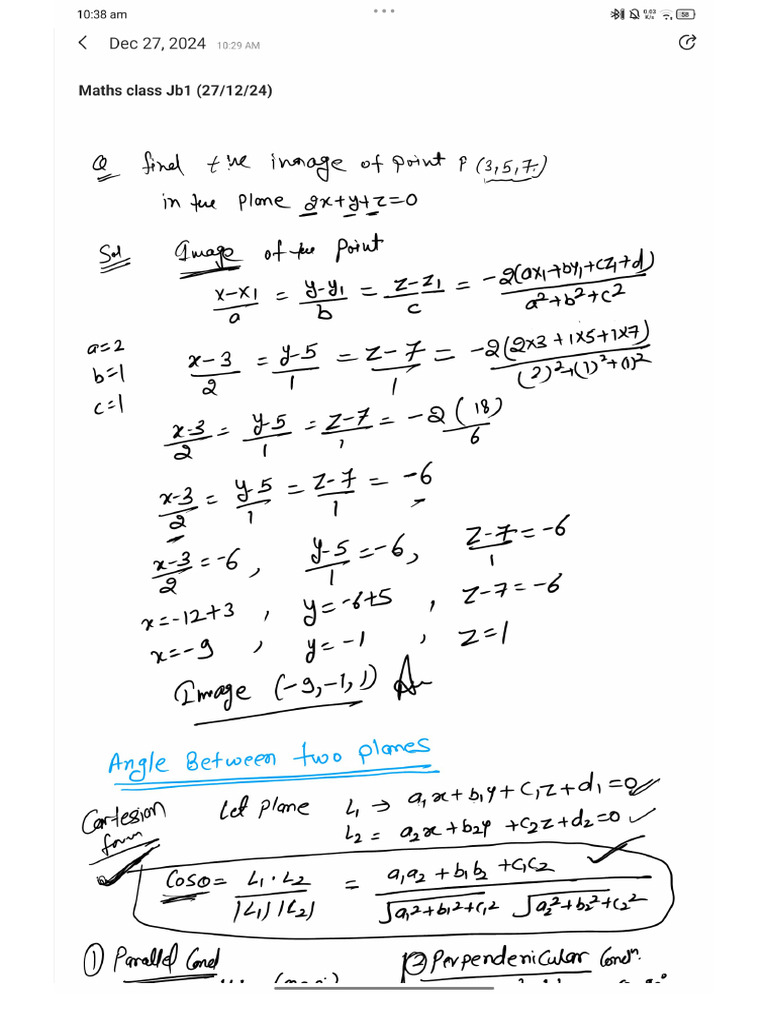 10:38 am
0.03 K/s 58
Dec 27, 2024 10:29 AM
Maths class Jb1 (27/12/24)
Q find the image of point P (3,5,7)
in the plane 2x+y+z=0
Sol Image of the point
(x-x1)/a = (y-y1)/b = (z-z1)/c = -2(ax1+by1+cz1+d)/(a²+b²+c²)
a=2
b=1
c=1
(x-3)/2 = (y-5)/1 = (z-7)/1 = -2(2x3+1x5+1x7)/((2)²+(1)²+(1)²)
(x-3)/2 = (y-5)/1 = (z-7)/1 = -2(18)/6
(x-3)/2 = (y-5)/1 = (z-7)/1 = -6
(x-3)/2 = -6, (y-5)/1 = -6, (z-7)/1 = -6
x=-12+3, y=-6+5, z-7=-6
x=-9, y=-1, z=1
Image (-9,-1,1)
Angle Between two planes
Cartesion form Let plane L1 → a1x+b1y+c1z+d1=0
L2 = a2x+b2y+c2z+d2=0
Cosθ = L1·L2/|L1||L2| = (a1a2+b1b2+c1c2)/(√(a1²+b1²+c1²) √(a2²+b2²+c2²))
① Parallel Cond ② Perpendenicular Condn.